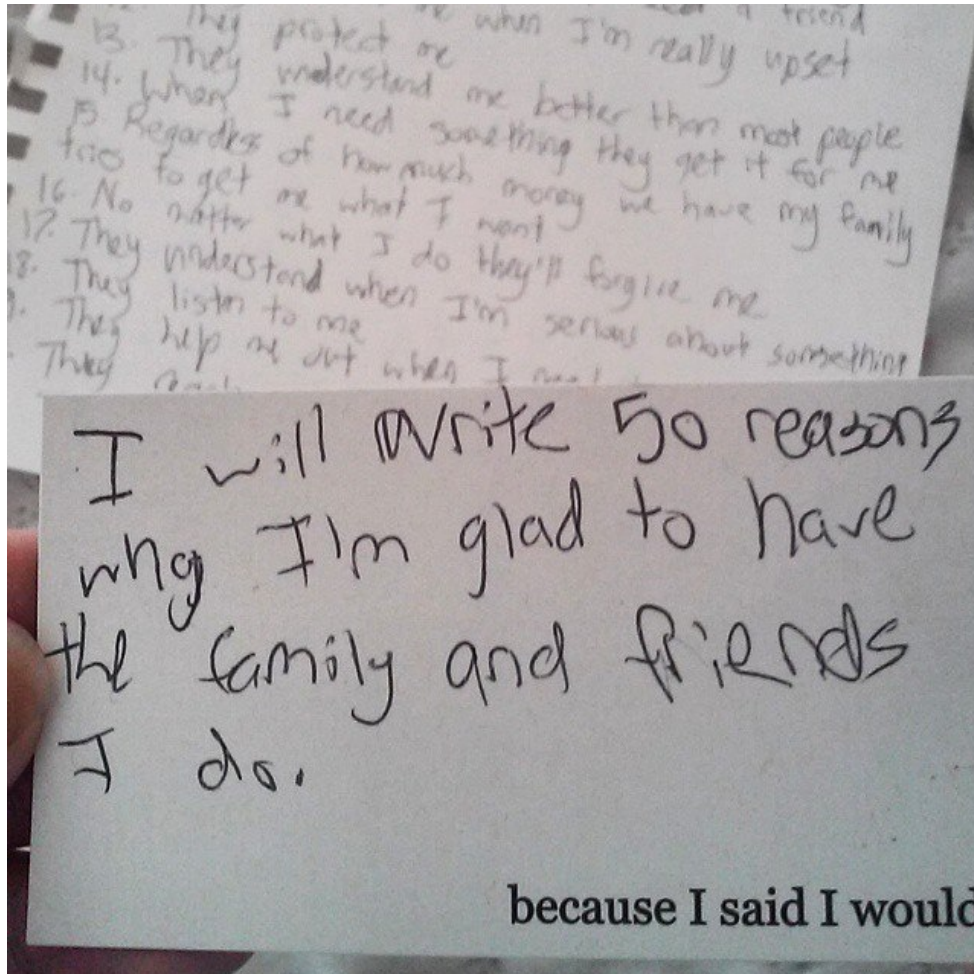 a friend
when I'm really upset
They protect me
13. They understand me better than most people
14. When I need something they get it for me
15 Regardless of how much money we have my family
tries to get me what I want
16. No matter what I do they'll forgive me
17. They understand when I'm serious about something
8. They listen to me
They help me out when I need
They
I will write 50 reasons
why I'm glad to have
the family and friends
I do.
because I said I would